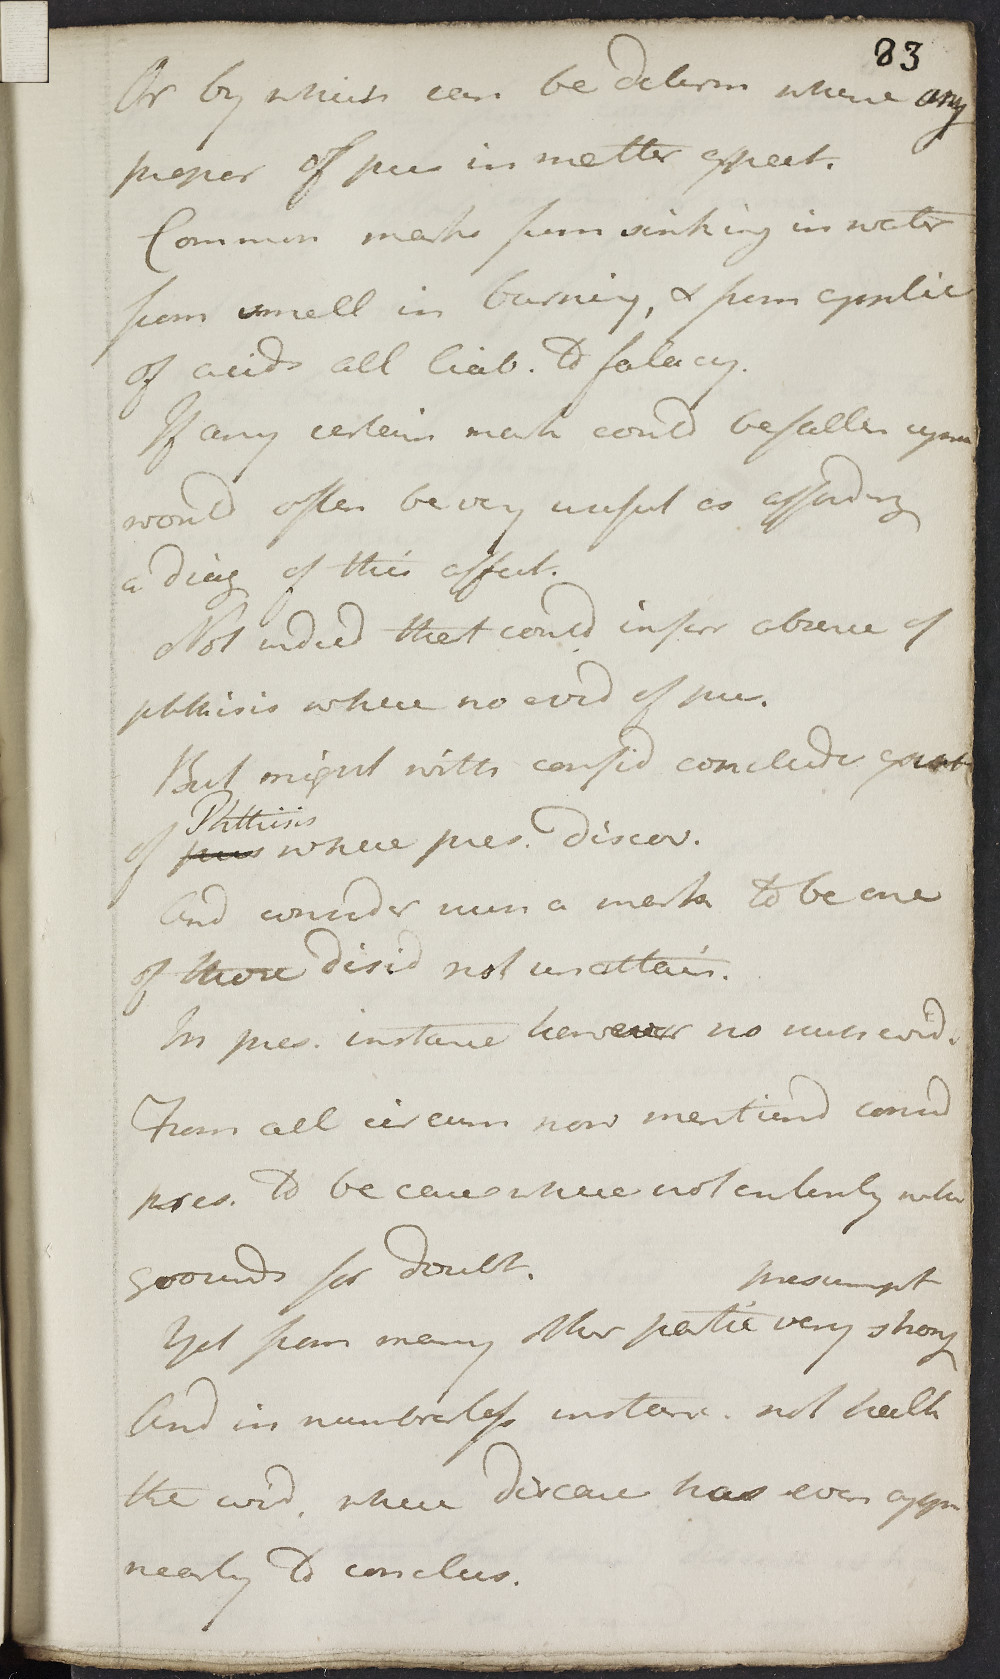 83
Or by which can be determ where any
propor of pus in matter expect.
Common marks from sinking in water
from smell in burning, & from applic
of acids all liab. to falacy.
If any certain mark could be fallen upon
would often be very useful as affording
a diag of this affect.
Not indeed that could infer absence of
phthisis where no evid of pus.
But might with confid conclude exist
of pus where pres. discov.
Phthisis
And consider such a mark to be one
of those desid not unattain.
In pres. instance however no such evid.
From all circum now mentiond consid
pres. to be case where not entirely with
grounds for doubt.
presumpt
Yet from many other partic very strong
And in numberless instanc. not health
the evid, where disease has even appr
nearly to conclus.